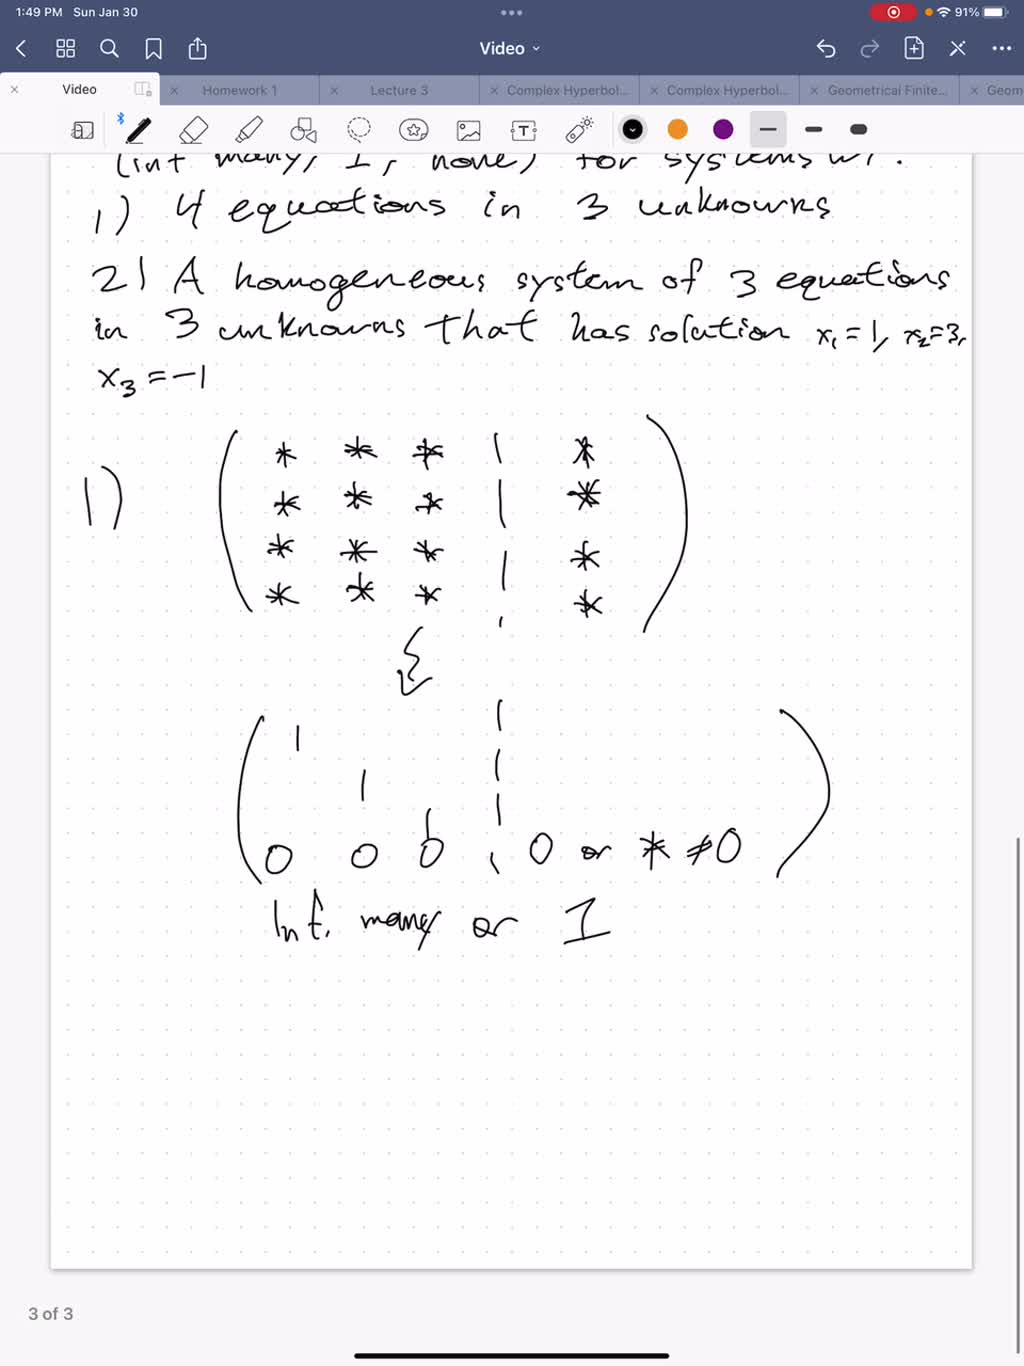 1:49 PM Sun Jan 30
91%
Video
Video
Homework 1
Lecture 3
Complex Hyperbol...
Complex Hyperbol...
Geometrical Finite...
Geom
(inf many, 1, none) for systems w/:
1) 4 equations in 3 unknowns
2) A homogeneous system of 3 equations
in 3 unknowns that has solution x₁ = 1, x₂ = 3,
x₃ = -1
1)
( * * * | * )
* * * | *
* * * | *
* * * | *
( 1 | )
1 |
1 |
0 0 0 | 0 or * ≠ 0
Inf. many or 1
3 of 3